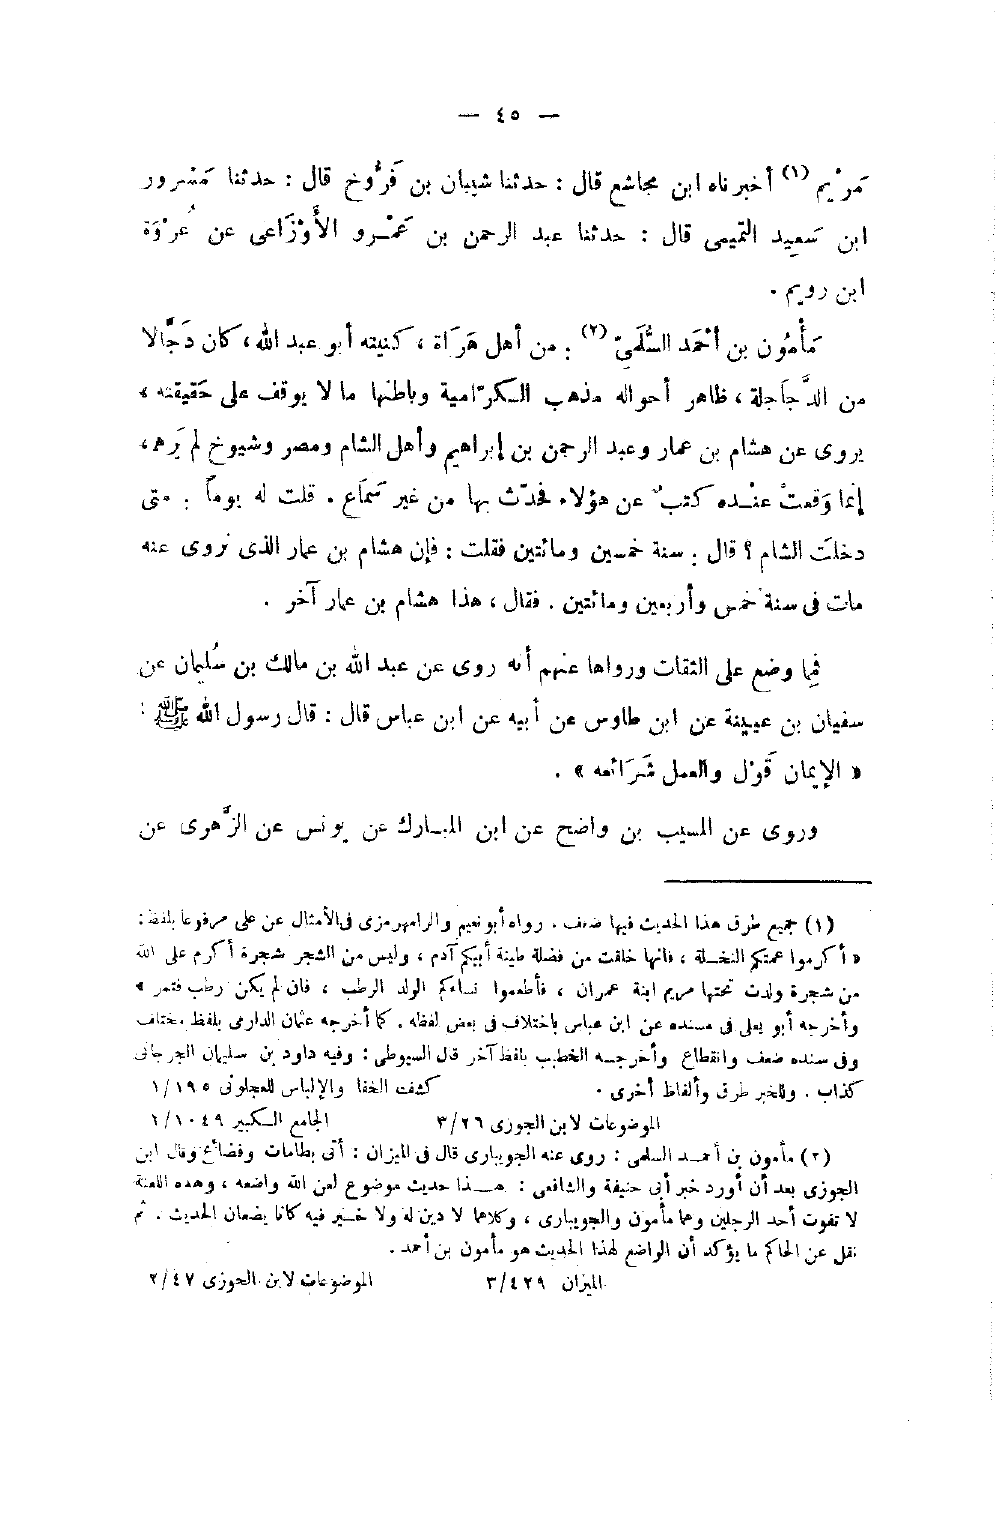 — ٤٥ —
مَرْيم (١) أخبرناه ابن مجاشع قال : حدثنا شيبان بن فَرُّوخ قال : حدثنا مَسْرور
ابن سَعِيد التميمى قال : حدثنا عبد الرحمن بن عَمْرو الأَوْزَاعى عن عُرْوَة
ابن رويم .
مَأْمُون بن أَحْمَد السُّلَمىّ (٢) : من أهل هَرَاة ، كنيته أبو عبد الله ، كان دَجَّالا
من الدَّجَاجلة ، ظاهر أحواله مذهب الكرّامية وباطنها ما لا يوقف على حَقيقته ،
يروى عن هشام بن عمار وعبد الرحمن بن إبراهيم وأهل الشام ومصر وشيوخ لم يَرهم ،
إنما وَقعتْ عنده كتبٌ عن هؤلاء فحدّث بها من غير سَمَاع . قلت له يوماً : متى
دخلتَ الشام ؟ قال : سنة خمسين ومائتين فقلت : فإن هشام بن عمار الذى تروى عنه
مات فى سنة خمس وأربعين ومائتين . فقال ، هذا هشام بن عمار آخر .
فما وضع على الثقات ورواها عنهم أنه روى عن عبد الله بن مالك بن سُليمان عن
سفيان بن عيينة عن ابن طاوس عن أبيه عن ابن عباس قال : قال رسول الله ﷺ :
« الإيمان قَوْل والعمل شَرَائعه » .
وروى عن المسيب بن واضح عن ابن المبارك عن يونس عن الزُّهرى عن
(١) جميع طرق هذا الحديث فيها ضعف . رواه أبو نعيم والرامهرمزى فى الأمثال عن على مرفوعا بلفظ :
« أكرموا عمتكم النخلة ، فانها خلقت من فضلة طينة أبيكم آدم ، وليس من الشجر شجرة أكرم على الله
من شجرة ولدت تحتها مريم ابنة عمران ، فأطعموا نساءكم الولد الرطب ، فان لم يكن رطب فتمر »
وأخرجه أبو يعلى فى مسنده عن ابن عباس باختلاف فى بعض لفظه . كما أخرجه عثمان الدارمى بلفظ مختلف
وفى سنده ضعف وانقطاع وأخرجه الخطيب بلفظ آخر قال السيوطى : وفيه داود بن سليمان الجرجانى
كذاب . وللخبر طرق وألفاظ أخرى . كشف الخفا والإلباس للعجلونى ١/١٩٥
الموضوعات لابن الجوزى ٣/٢٦ الجامع الكبير ١/١٠٤٩
(٢) مأمون بن أحمد السلمى : روى عنه الجويبارى قال فى الميزان : أتى بطامات وفضائح وقال ابن
الجوزى بعد أن أورد خبر أبى حنيفة والشافعى : هذا حديث موضوع لعن الله واضعه ، وهذه اللعنة
لا تفوت أحد الرجلين وهما مأمون والجويبارى ، وكلاهما لا دين له ولا خير فيه كانا يضعان الحديث . ثم
نقل عن الحاكم ما يؤكد أن الواضع لهذا الحديث هو مأمون بن أحمد .
الميزان ٣/٤٢٩ الموضوعات لابن الجوزى ٢/٤٧